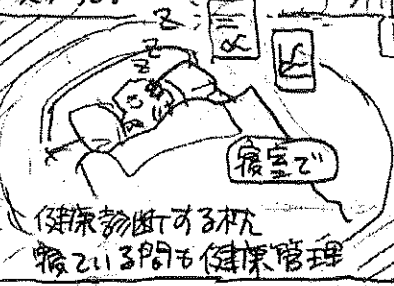 z
z
z
寝室で
健康診断する枕
寝ている間も健康管理